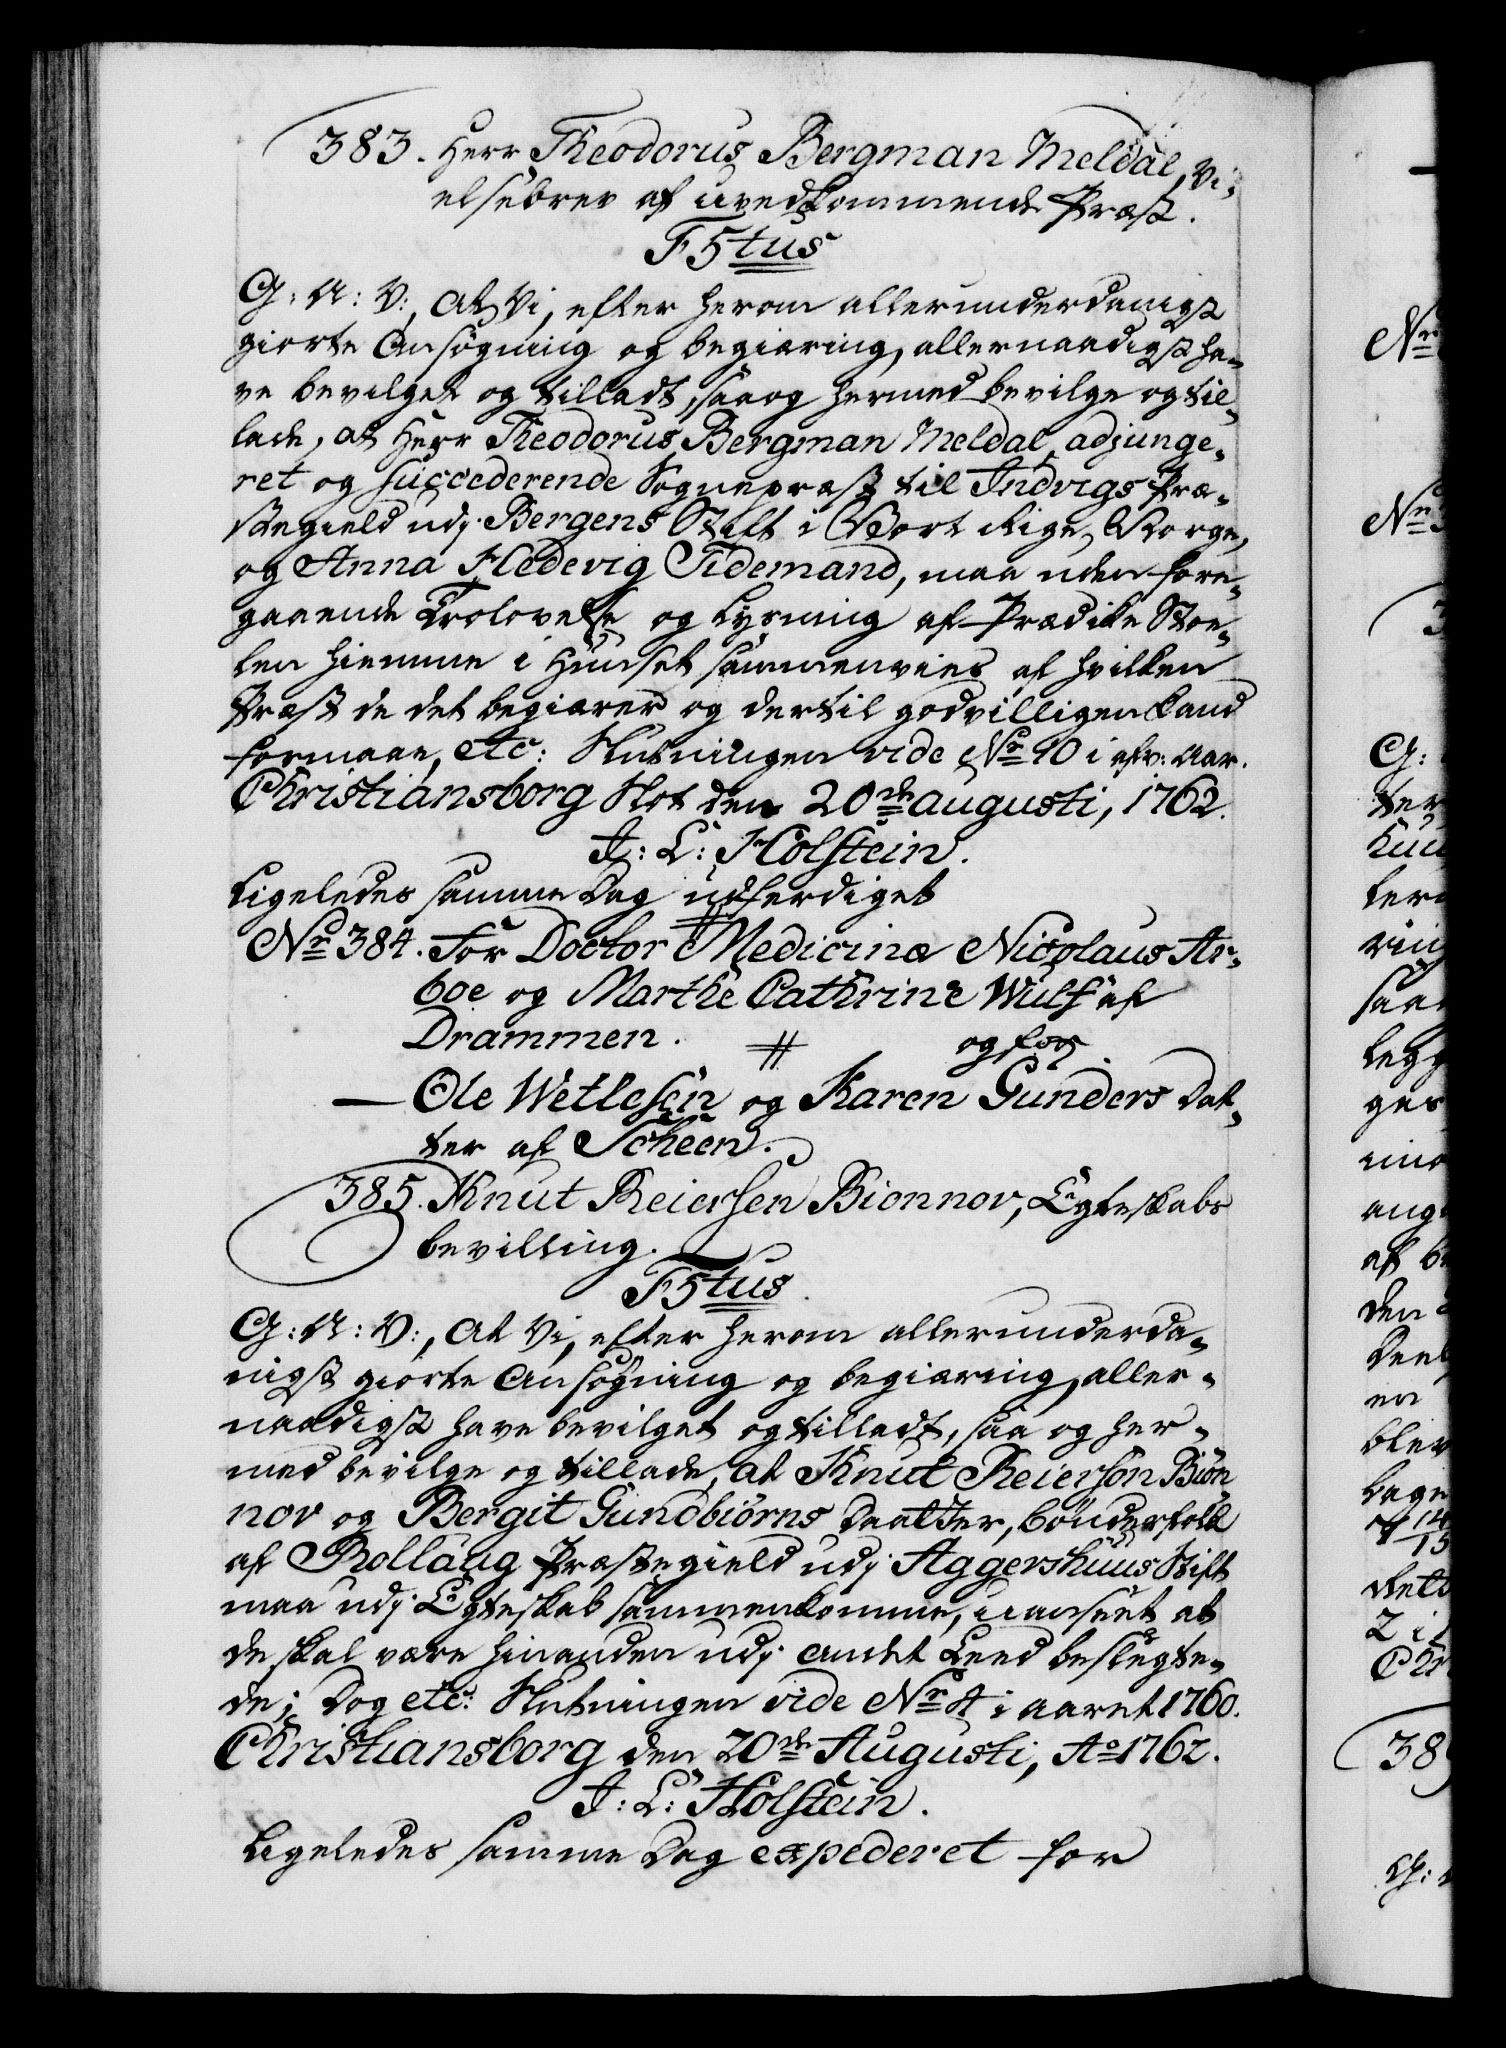 383. Herr Theodorus Bergman Meldal, Vi-
elsebrev af uvedkommende Præst.
F5tus
G: A: V:, At Vi, efter herom allerunderdanigst
giorte Ansögning og begiæring, allernaadigst ha-
ve bevilget og tilladt, saa og hermed bevilge og til-
lade, at Herr Theodorus Bergman Meldal, adjunge-
ret og succederende Sognepræst til Indvigs Præ-
stegield udj Bergens Stift i Vort Rige Norge,
og Anna Hedevig Tidemand, maa uden fore-
gaaende Trolovelse og Lysning af Prædike Stoe-
len hiemme i Huuset sammenvies af hvilken
Præst de det begiærer og dertil godvilligen kand
formaae, etc: Slutningen vide No 90 i afv: Aar.
Christiansborg Slot den 20de augusti, 1762.
J: L: Holstein.
Ligeledes samme Dag udferdiget
Nr 384. For Doctor Medicinæ Nicolaus Ar-
boe og Marthe Cathrine Wulf af
Drammen. // og for
— Ole Wetlesen og Karen Gunders Dat-
ter af Scheen.
385. Knut Reiersen Bionnov, Egteskabs
bevilling.
F5tus.
G: A: V:, At Vi, efter herom allerunderda-
nigst giorte Ansögning og begiæring, aller-
naadigst have bevilget og tilladt, saa og her-
med bevilge og tillade, at Knut Reiersön Biön-
nov og Bergit Gundbiörns Daatter, bönderfolk
af Rollaug Præstegield udj Aggershuus Stift
maa udj Egteskab sammenkomme, uanseet at
de skal være hinanden udj andet Leed beslegte-
de; Dog etc: Slutningen vide Nr 4 i aaret 1760.
Christiansborg den 20de Augusti, Ao 1762.
J: L: Holstein.
Ligeledes samme Dag expederet for